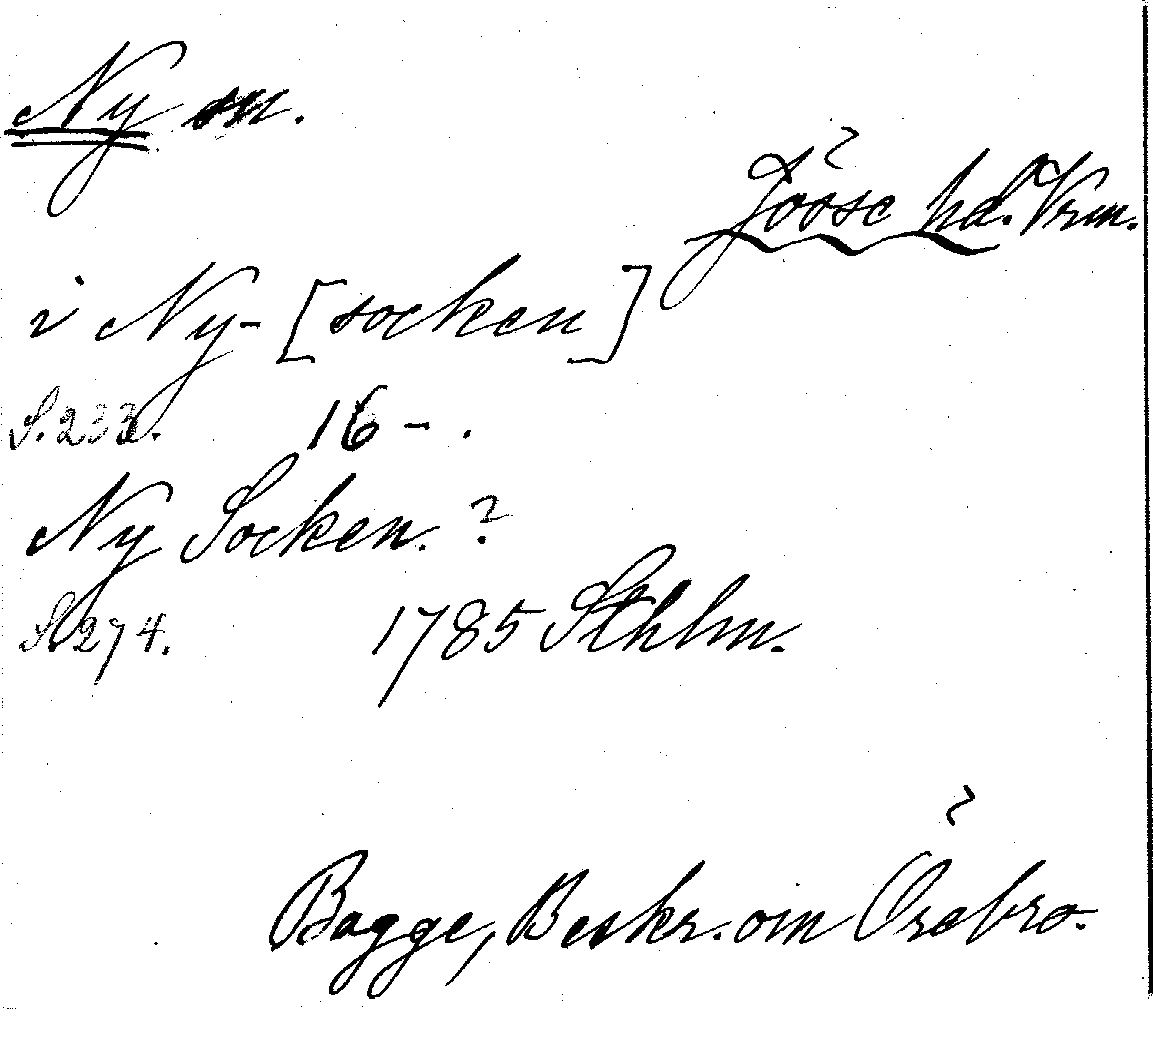 Ny sn.
Jösse hd. Vrm.
i Ny- [socken]
S. 233. 16-.
Ny Socken. ?
S. 274. 1785 Sthlm.
Bagge, Beskr. om Örebro.